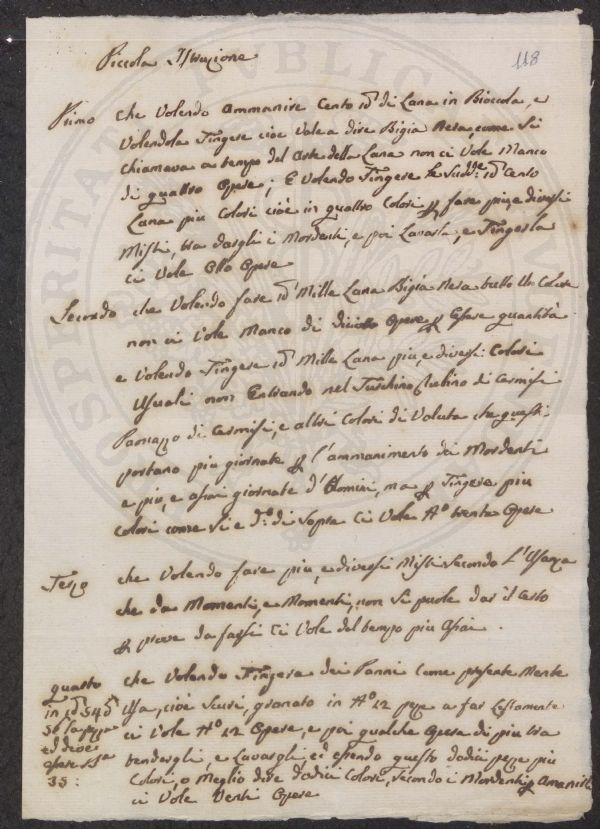 118
Piccola Istruzione
Primo che Volendo Ammanire Cento lb di Lana in Bioccola, e
Volendola Tingere cioè Vale a dire Bigia Nera, come Si
Chiamava a tempo del Arte della Lana non ci Vole Manco
di quattro Opere; E Volendo Tingere le Sudde lb Cento
Lana più Colori cioè in quattro Colori p fare più e diversi
Misti, tra dargli i Mordenti, e poi Lavarla, e Tingerla
ci Vole Otto Opere
Secondo che Volendo fare lb Mille Lana Bigia Nera tutto Un Colore
non ci Vole Manco di diciotto Opere p quantità
e Volendo Tingere lb Mille Lana più, e diversi Colori
Usuali non Entrando nel Turchino di Cermisi
Paonazzo di Cermisi, e altri Colori di Valuta che questi
portano più giornate p l'ammanimento dei Mordenti
e più, e assai giornate d'Uomini, ma p Tingere più
Colori come Si è do di Sopra Ci Vole No trenta Opere
Terzo che Volendo fare più, e diversi Misti Secondo L'Usanza
che da Momenti, e Momenti, non Si puole dar il Certo
p prove da fargli Ci Vole del tempo più Assai.
quarto che Volendo Tingere dei Panni Come presente Mente
Usa, cioè Scuri, granato in No 12 peze a far lestamente
ci Vole No 12 Opere, e poi qualche Opera di più tra
tendergli, e Lavargli, ed essendo questo dodici peze più
Colori, o Meglio dire dodici Colori, Secondo i Mordenti p Amanirli
ci Vole Venti Opere
35: